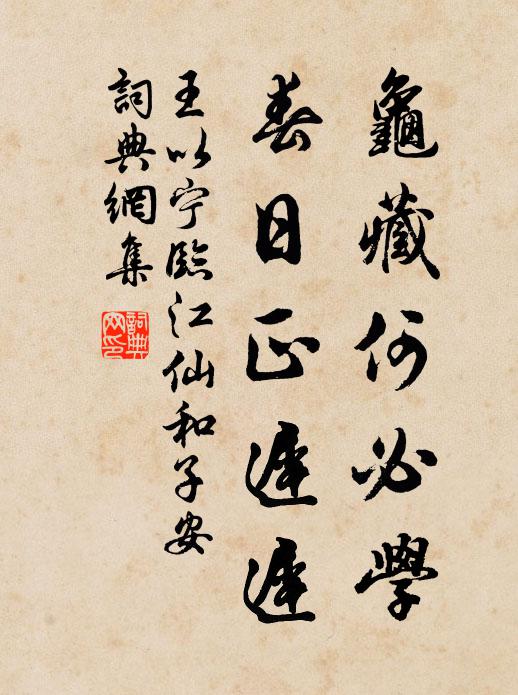 龜藏何必學
春日正遲遲
王以宁臨江仙和子安
詞典網集
詞典
网印